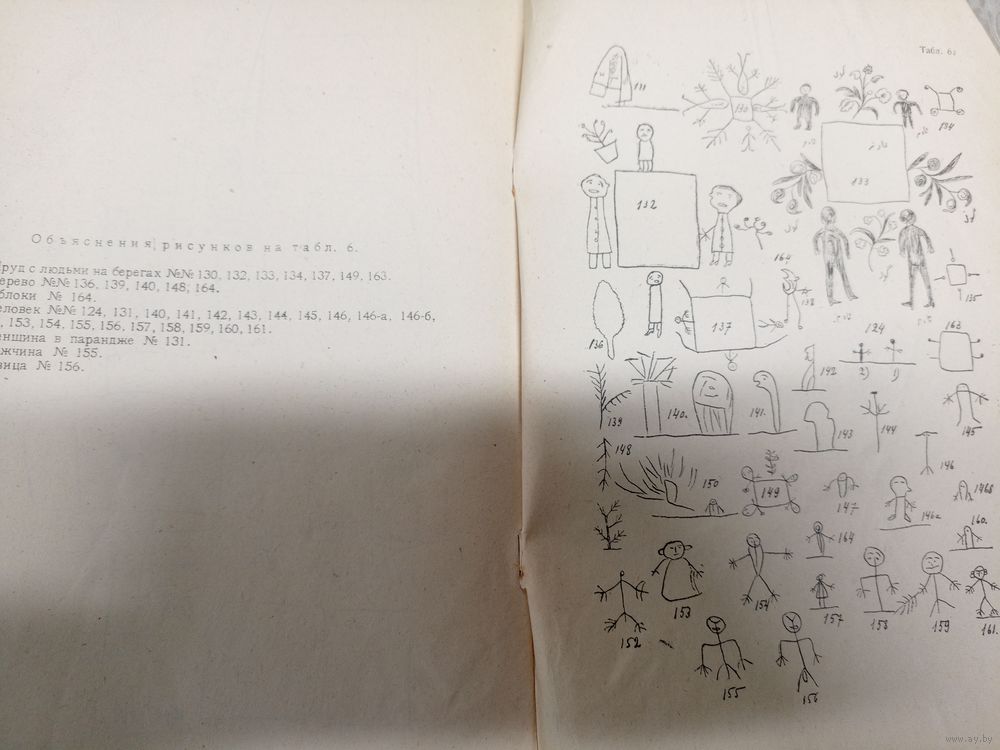 Объяснения рисунков на табл. 6.
Пруд с людьми на берегах №№ 130, 132, 133, 134, 137, 149, 163.
ерево №№ 136, 139, 140, 148, 164.
блоки № 164.
еловек №№ 124, 131, 140, 141, 142, 143, 144, 145, 146, 146-а, 146-б,
, 153, 154, 155, 156, 157, 158, 159, 160, 161.
енщина в парандже № 131.
жчина № 155.
вица № 156.
Табл. 6
131
130
134
133
132
164
138
135
136
137
124
163
2)
1)
142
139
140.
141.
143
144
145
148
146
150
149
147
146а
146б
160.
164
153
154
157
158
159
161.
152
155
156
www.ay.by